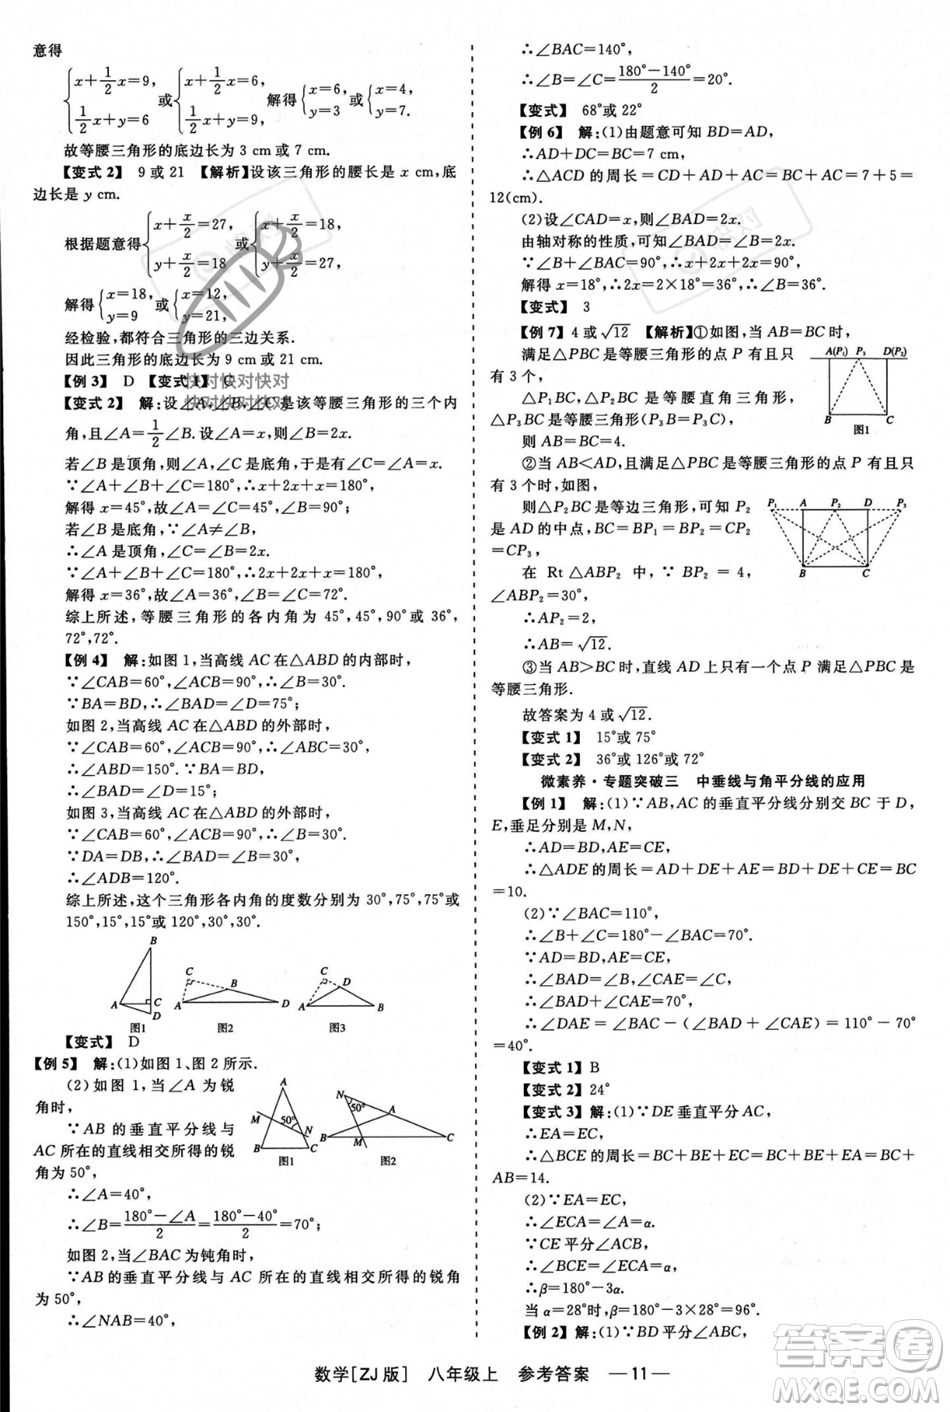 意得
{x+1/2x=9, 1/2x+y=6 或 {x+1/2x=6, 1/2x+y=9. 解得 {x=6, y=3 或 {x=4, y=7.
故等腰三角形的底边长为 3 cm 或 7 cm.
【变式 2】 9 或 21 【解析】设该三角形的腰长是 x cm,底
边长是 y cm.
根据题意得 {x+x/2=27, y+x/2=18 或 {x+x/2=18, y+x/2=27,
解得 {x=18, y=9 或 {x=12, y=21,
经检验,都符合三角形的三边关系.
因此三角形的底边长为 9 cm 或 21 cm.
【例 3】 D 【变式 1】 C
【变式 2】 解:设∠A,∠B,∠C 是该等腰三角形的三个内
角,且∠A=1/2∠B.设∠A=x,则∠B=2x.
若∠B 是顶角,则∠A,∠C 是底角,∴∠C=∠A=x.
∵∠A+∠B+∠C=180°,∴x+2x+x=180°,
解得 x=45°,故∠A=∠C=45°,∠B=90°;
若∠B 是底角,∵∠A≠∠B,
∴∠A 是顶角,∠C=∠B=2x.
∵∠A+∠B+∠C=180°,∴x+2x+2x=180°,
解得 x=36°,故∠A=36°,∠B=∠C=72°.
综上所述,等腰三角形的各内角为 45°,45°,90°或 36°,
72°,72°.
【例 4】 解:如图 1,当高线 AC 在△ABD 的内部时,
∵∠CAB=60°,∠ACB=90°,∴∠B=30°.
∵BA=BD,∴∠BAD=∠D=75°;
如图 2,当高线 AC 在△ABD 的外部时,
∵∠CAB=60°,∠ACB=90°,∴∠ABC=30°.
∴∠ABD=150°,
∵BA=BD,∴∠BAD=∠D=15°;
如图 3,当高线 AC 在△ABD 的外部时,
∵∠CAB=60°,∠ACB=90°,∴∠B=30°.
∵DA=DB,∴∠DAB=∠B=30°,
∴∠ADB=120°.
综上所述,这个三角形各内角的度数分别为 30°,75°,75°或
150°,15°,15°或 120°,30°,30°.
B
A C
D
图1
C B
A D
图2
C D
A B
图3
【变式】 D
【例 5】 解:(1)如图 1、图 2 所示.
(2)如图 1,当∠A 为锐
角时,
∵AB 的垂直平分线与
AC 所在的直线相交所得的锐
角为 50°,
A
M
50° N
B C
图1
N
50° A
B M C
图2
∴∠A=40°,
∴∠B=(180°-∠A)/2=(180°-40°)/2=70°;
如图 2,当∠BAC 为钝角时,
∵AB 的垂直平分线与 AC 所在的直线相交所得的锐角
为 50°,
∴∠NAB=40°,
∴∠BAC=140°,
∴∠B=∠C=(180°-140°)/2=20°.
【变式】 68°或 22°
【例 6】 解:(1)由题意可知 BD=AD,
∴AD+CD=BD+CD=BC=7,
∴△ACD 的周长=CD+AD+AC=BC+AC=7+5=
12(cm).
(2)设∠CAD=x,则∠BAD=2x.
由轴对称的性质,可知∠B=∠BAD=2x.
∵∠C=90°,∴∠B+∠BAC=90°,∴2x+2x+x=90°,
解得 x=18°,∴2x=2×18°=36°,∴∠B=36°.
【变式】 3
【例 7】 4 或√12 【解析】①如图,当 AB=BC 时,
满足△PBC 是等腰三角形的点 P 有且只
有 3 个,
△P₁BC,△P₂BC 是等腰直角三角形,
△P₃BC 是等腰三角形(P₃B=P₃C),
则 AB=BC=4.
A(P₁) P₃ D(P₂)
B C
图1
②当 AB<AD,且满足△PBC 是等腰三角形的点 P 有且只
有 3 个时,如图,
△P₁BC 是等腰三角形,点 P₂
是 AD 的中点,BC=BP₁=BP₂=CP₂=CP₃.
在 Rt △ABP₂ 中,∵BP₂ = 4,
∠ABP₂=30°,
∴AP₂=2,
∴AB=√12.
P₁ A P₂ D P₃
B C
③当 AB>BC 时,直线 AD 上只有一个点 P 满足△PBC 是
等腰三角形.
故答案为 4 或√12.
【变式 1】 15°或 75°
【变式 2】 36°或 126°或 72°
微素养·专题突破三 中垂线与角平分线的应用
【例 1】 解:(1)∵AB,AC 的垂直平分线分别交 BC 于 D,
E,垂足分别是 M,N,
∴AD=BD,AE=CE,
∴△ADE 的周长=AD+DE+AE=BD+DE+CE=BC
=10.
(2)∵∠BAC=110°,
∴∠B+∠C=180°-∠BAC=70°.
∵AD=BD,AE=CE,
∴∠BAD=∠B,∠CAE=∠C,
∴∠BAD+∠CAE=∠B+∠C=70°,
∴∠DAE=∠BAC-(∠BAD+∠CAE)=110°-70°
=40°.
【变式 1】 B
【变式 2】 24°
【变式 3】 解:(1)∵DE 垂直平分 AC,
∴CE=AE,
∴△BCE 的周长=BC+BE+CE=BC+BE+AE=BC+
AB=14.
(2)∵EA=EC,
∴∠ECA=∠A=α.
∵CE 平分∠ACB,
∴∠BCE=∠ECA=α,
∴β=180°-3α.
当 α=28°时,β=180°-3×28°=96°.
【例 2】 解:(1)∵BD 平分∠ABC,
数学[ZJ版] 八年级上 参考答案 —11—
快对快对快对
快对快对快对